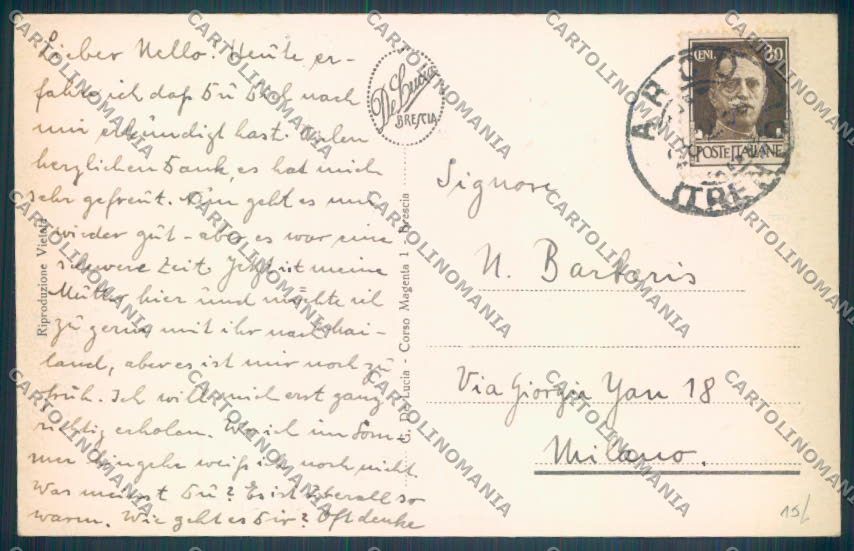 Lieber Nello. Heute er-
fahre ich daß Du Dich nach
mir erkundigt hast. Vielen
herzlichen Dank, es hat mich
sehr gefreut. Nun geht es mir
wieder gut - aber es war eine
schwere Zeit. Jetzt ist meine
Mutter hier und möchte ich
zu gern mit ihr nach Mai-
land, aber es ist mir noch zu
früh. Ich will mich erst ganz
richtig erholen. Wo ich im Som-
mer hingehe weiß ich noch nicht.
Was meinst Du? Es ist überall so
warm. Wie geht es Dir? Oft denke
Riproduzione Vietata
De Lucia
BRESCIA
G. De Lucia - Corso Magenta 1 - Brescia
CENT. 30
POSTE ITALIANE
ARCO
(TRE
Signore
N. Bartaris
Via Giorgio Yan 18
Milano.
15/
CARTOLINOMANIA